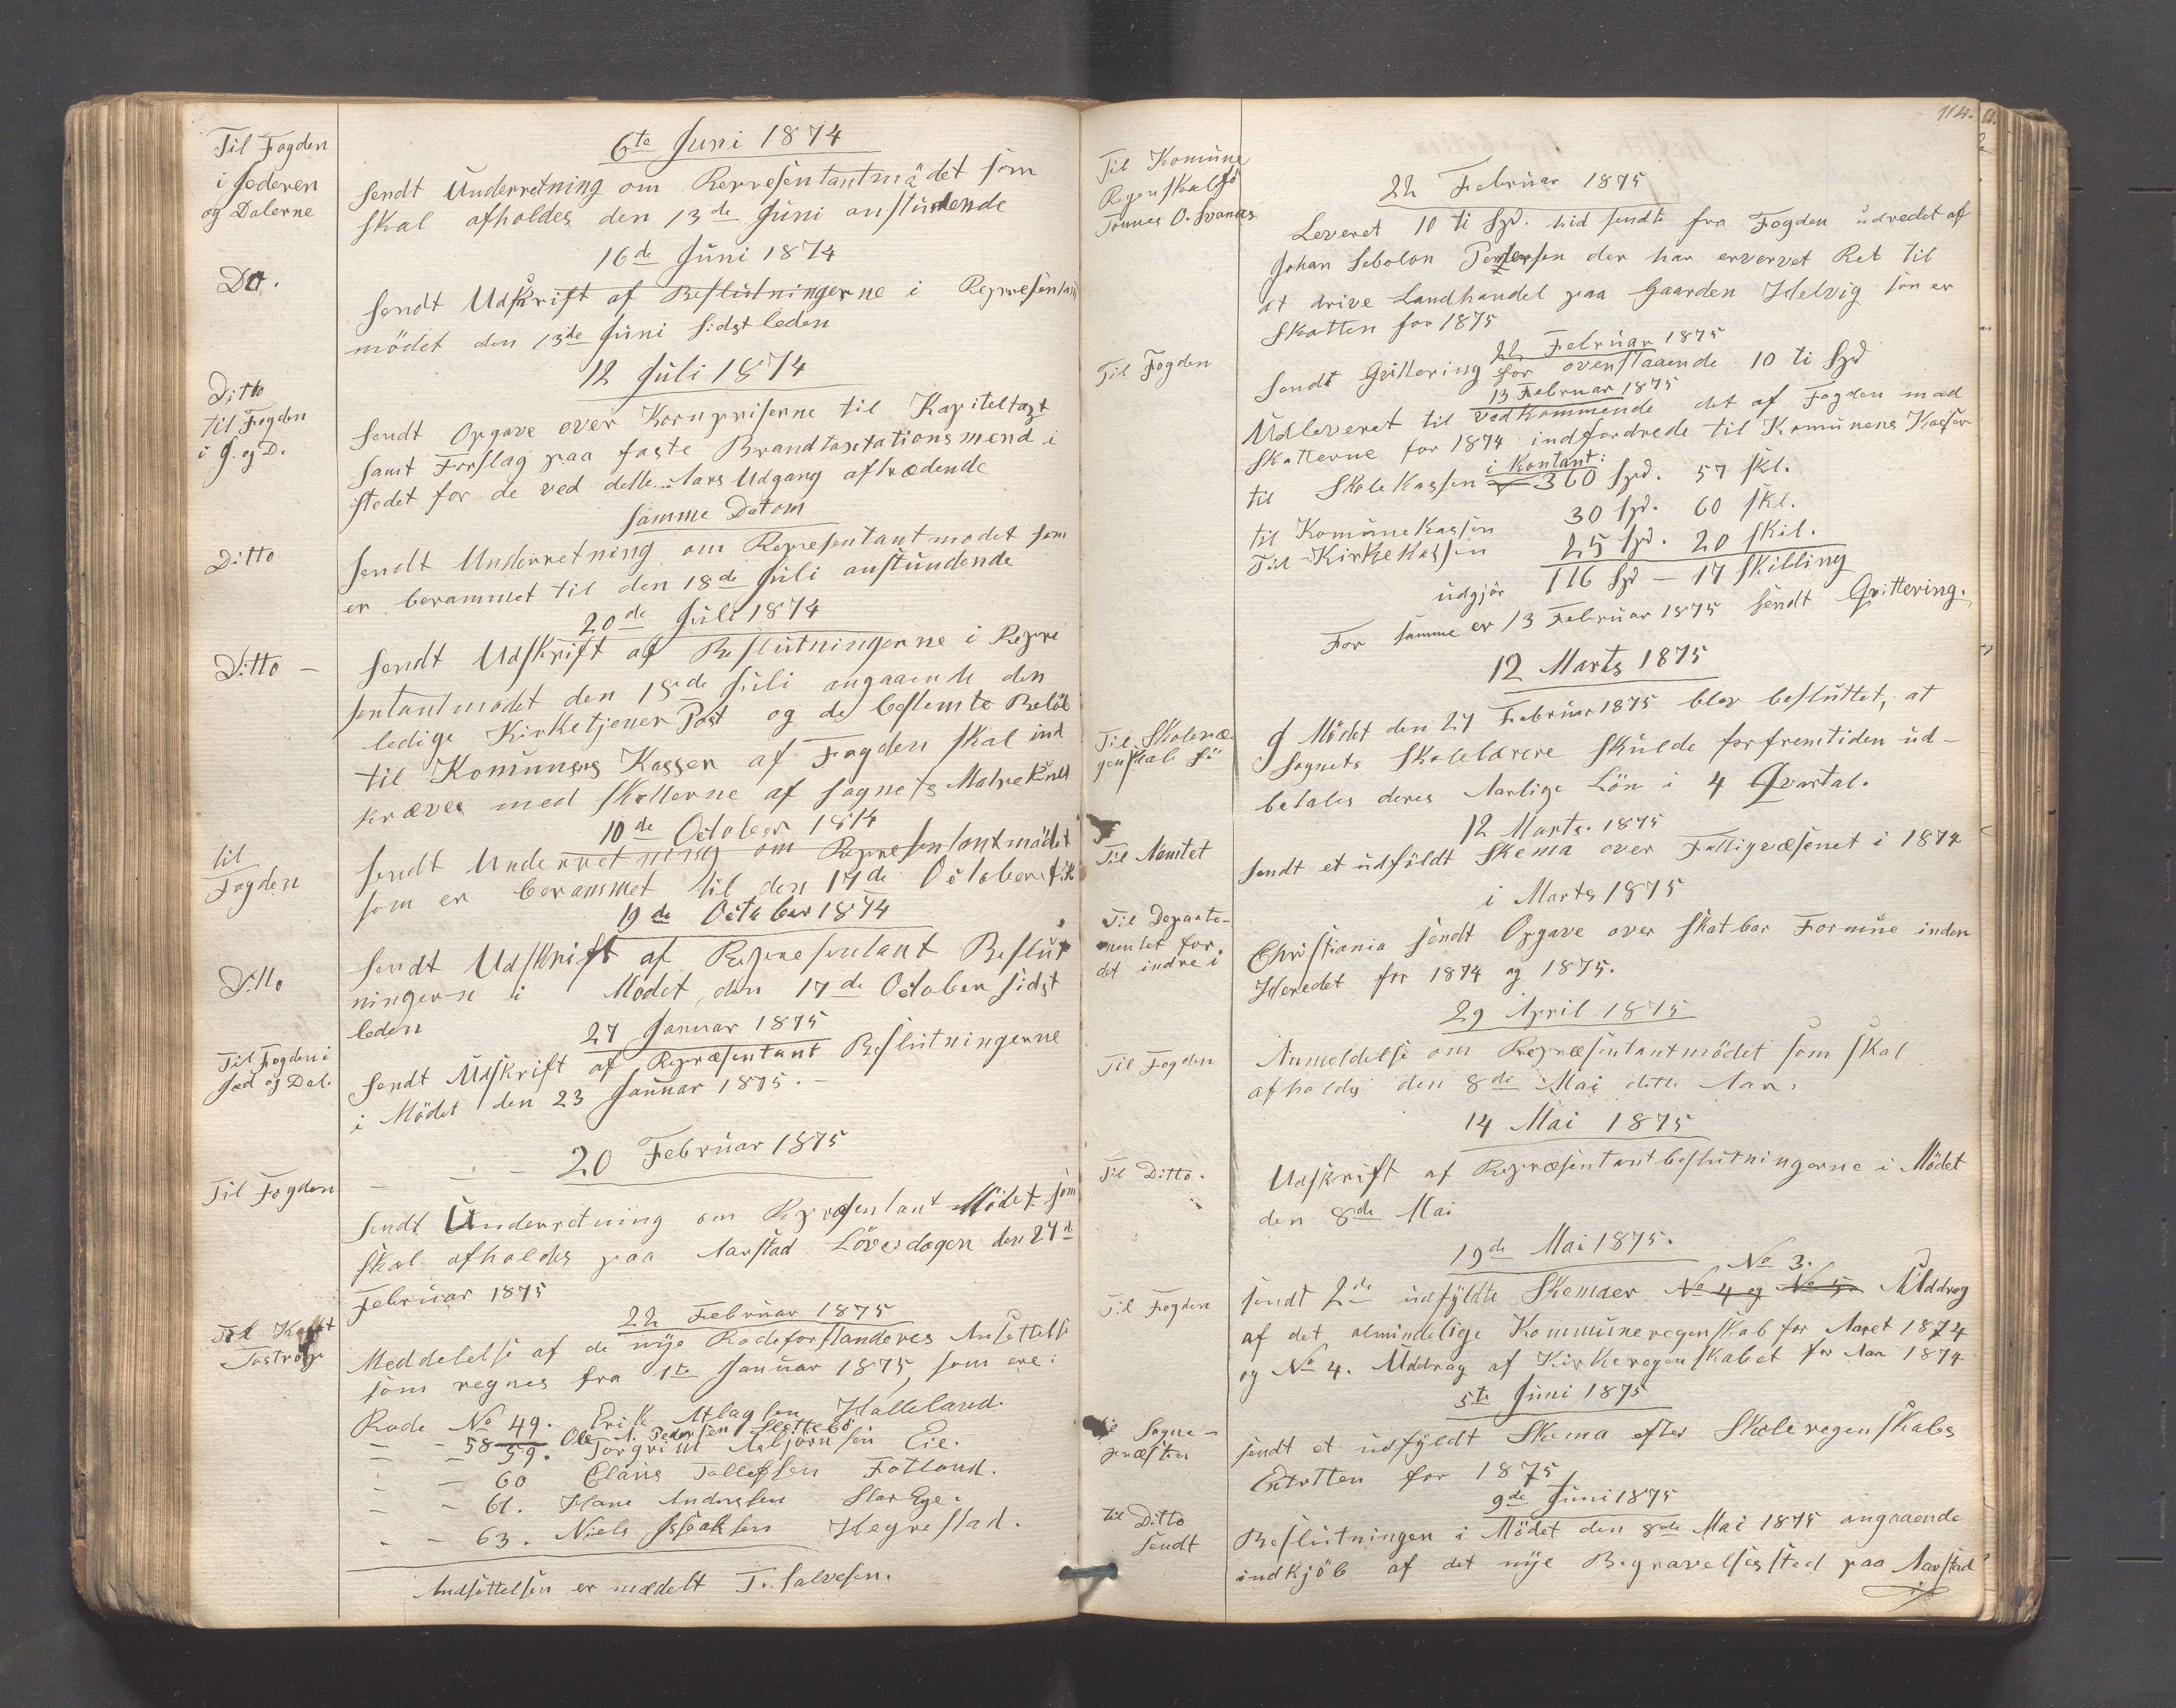 Til Fogden
i Jederen
og Dalerne
6te Juni 1874
Sendt Underretning om Representantmödet som
skal afholdes den 13de Juni anstundende
16de Juni 1874
Do.
Sendt Udskrift af Beslutningerne i Representant
mödet den 13de Juni sidstleden
12 Juli 1874
Ditto
til Fogden
i J. og D.
Sendt Opgave over Kornpriserne til Kapiteltaxt
samt Forslag paa faste Brandtaxtationsmend i
stedet for de ved dette Aars Udgang aftrædende
samme Datom
Ditto
Sendt Underretning om Representantmodet som
er berammet til den 18de Juli anstundende
20de Juli 1874
Ditto –
Sendt Udskrift af Beslutningerne i Repre
sentantmödet den 18de Juli angaaende den
ledige Kirketjener Post og de bestemte Belöb
til Komunens Kasser af Fogden skal ind
kræves med Skatterne af Sognets Matrekuul
10de October 1874
til
Fogden
Sendt Underretning om Representantmödet
som er berammet til den 17de October
19de October 1874
Ditto
Sendt Udskrift af Representant Beslut
ningerne i Mödet den 17de October sidst
leden
27 Januar 1875
Til Fogden i
Jæd og Dal.
Sendt Udskrift af Repræsentant Beslutningerne
i Mödet den 23 Januar 1875. –
– – – 20 Februar 1875
Til Fogden
Sendt Underretning om Repræsentant Mödet som
skal afholdes paa Aarstad Löverdagen den 27d
Februar 1875
22 Februar 1875
Meddelelse af de nye Rodeforstanderes Ansettelse
som regnes fra 1te Januar 1875, som ere:
Rode No 49. Erik Atlagsen Halleland.
– – 58 Ole A. Pedersen Slettebö
– – 59. Torgrim Asbjörnsen Eie.
– – 60 Claus Tollefsen Fotland.
– – 61. Hans Andersen Stor Eye.
– – 63. Niels Issaksen Hegrestad.
Andsettelsen er mældelt T. Salvesen.
114.
Til Komune
Regenskabsfö
Tönnes O. Svanes
22 Februar 1875
Leveret 10 ti Spd. hid sendte fra Fogden udredet af
Johan Sebolon Pedersen der har ervervet Ret til
at drive Landhandel paa Gaarden Helvig son er
Skatten for 1875
22 Februar 1875
Til Fogden
Sendt Qvittering for ovenstaaende 10 ti Spd
13 Februar 1875
Udleveret til vedkommende det af Fogden mad
Skatterne for 1874 indfordrede til Komunens Kasser
i Kontant:
til Skolekassen 360 Spd. 57 skl.
til Komunekassen 30 Spd. 60 skl.
Til Kirkekassen 25 Spd. 20 skil.
udgjör 116 Spd – 17 Skilling
For samme er 13 Februar 1875 sendt Qvittering.
12 Marts 1875
Til Skolere
genskabsfö
I Mödet den 27 Februar 1875 blev besluttet, at
Sognets Skolelærere skulde forfremtiden ud-
betales deres Aarlige Lön i 4 Qvartal.
12 Marts. 1875
Til Namtet
Sendt et udfyldt Skema over Fattigvæsenet i 1874
i Marts 1875
Til Departe-
mentet for
det indre i
Christiania sendt Opgave over skatbar Formue inden
Heredet for 1874 og 1875.
29 April 1875
Til Fogden
Anmeldelse om Repræsentantmödet som skal
afholdes den 8de Mai dette Aar.
14 Mai 1875
Til Ditto.
Udskrift af Repræsentantbeslutningerne i Mödet
den 8de Mai
19de Mai 1875.
No 3.
Til Fogden
sendt 2de udfyldte Skemaer No 4 og No 5. Uddrag
af det almindelige Kommuneregenskab for Aaret 1874
og No 4. Uddrag af Kirkeregenskabet for Aar 1874
5te Juni 1875
Til Sogne-
præsten
sendt et udfyldt Skema efter Skoleregenskabs
Extratten for 1875
9de Juni 1875
til Ditto
sendt
Beslutningen i Mödet den 8de Mai 1875 angaaende
indkjöb af det nye Begravelsessted paa Aarstad